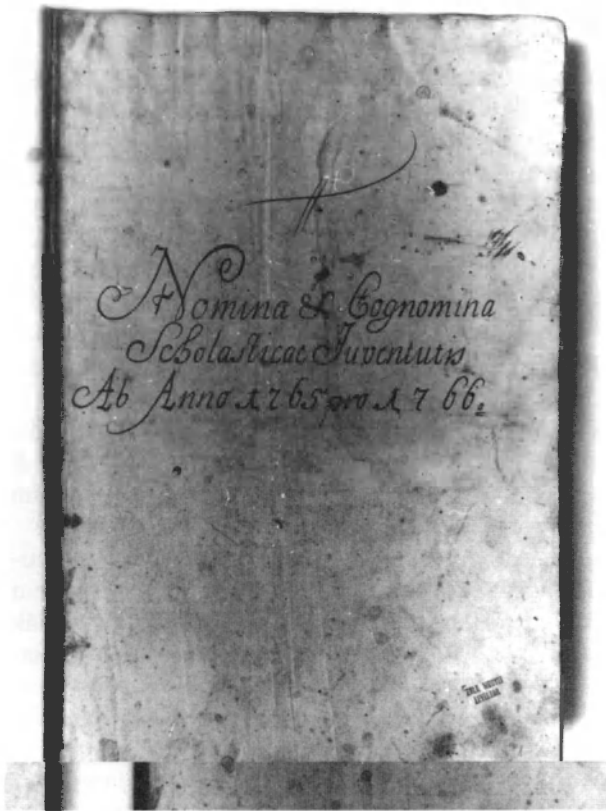 Nomina & Cognomina
Scholasticae Juventutis
Ab Anno 1765 pro 1766.